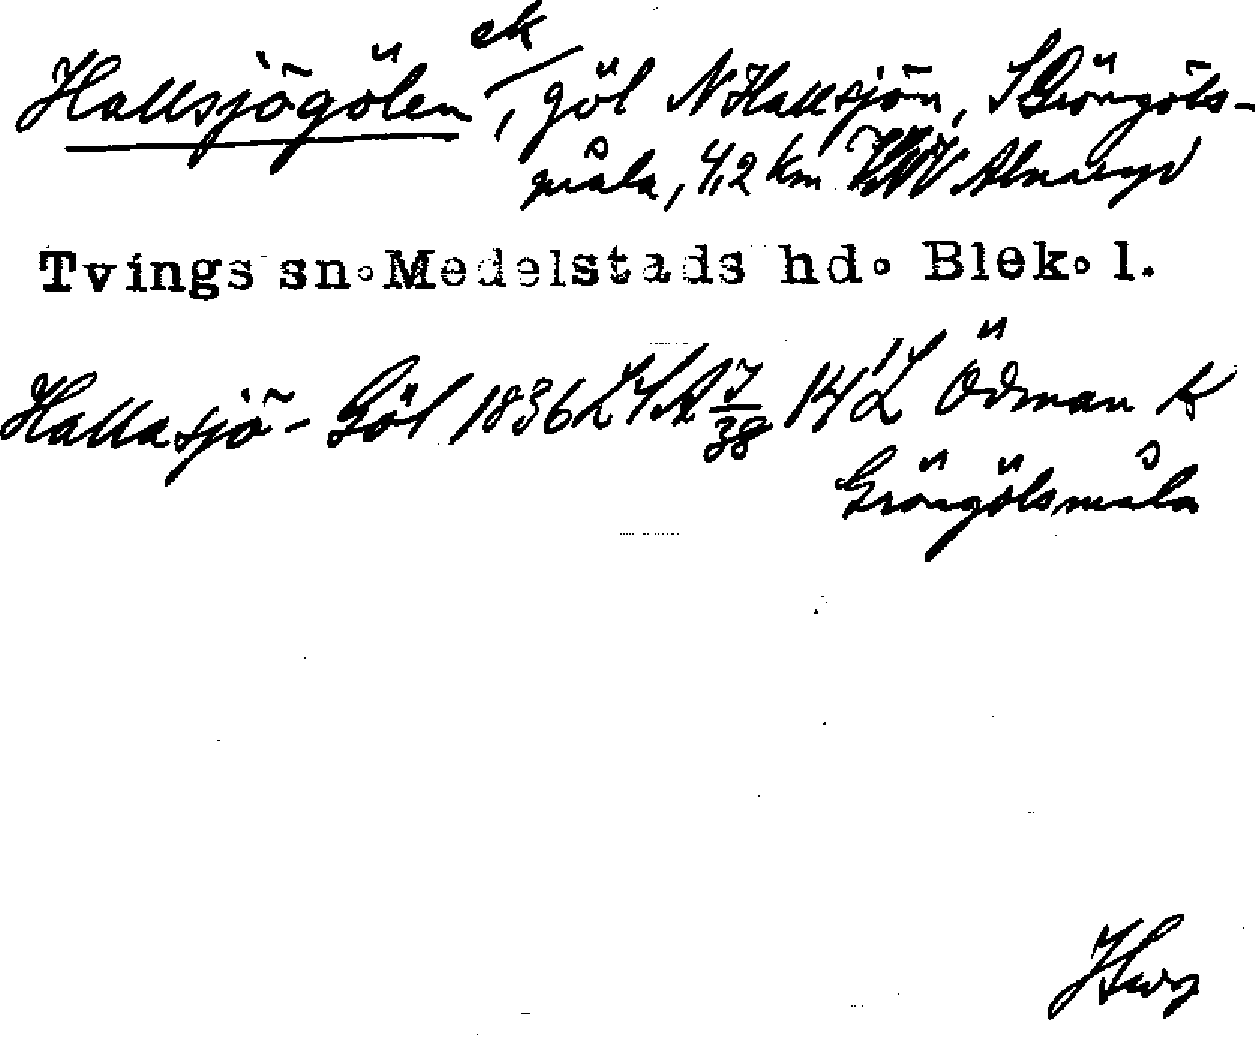 Hallsjögölen ek/, göl N Hallsjön, S Gröngöls-
måla, 4,2 km NV Alnaryd
Tvings sn. Medelstads hd. Blek. l.
Hallasjö-Göl 1836 LSA 7/38 14'L Ödman K
Gröngölsmåla